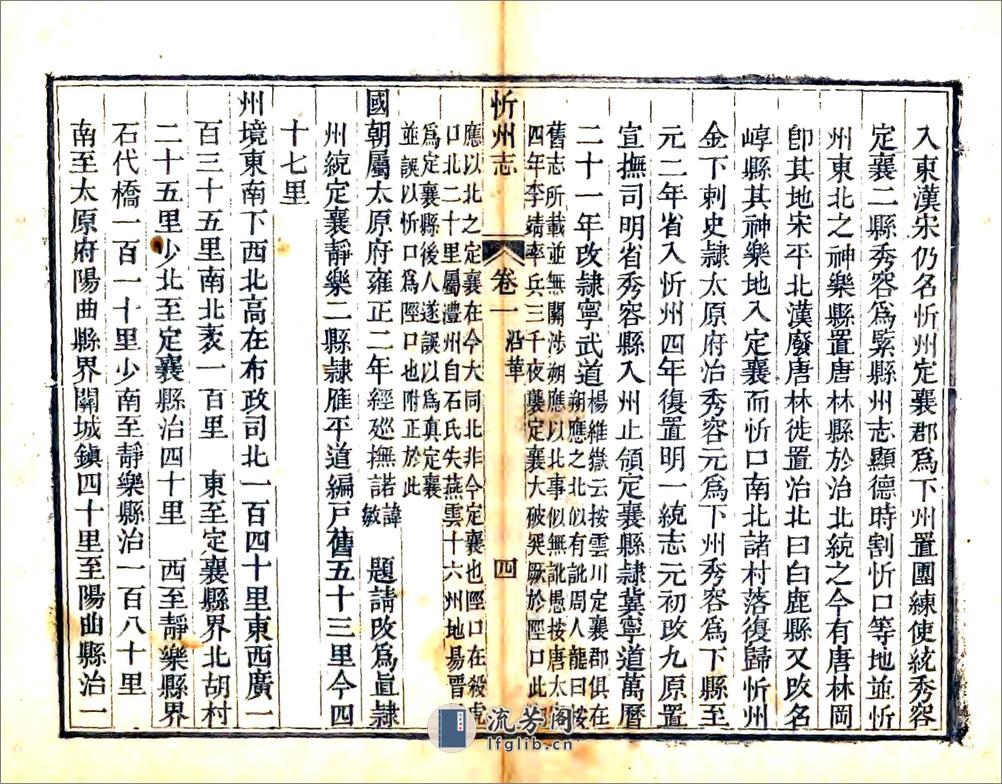 入東漢宋仍名忻州定襄郡爲下州置團練使統秀容
定襄二縣秀容爲緊縣州志顯德時割忻口等地並忻
州東北之神樂縣置唐林縣於治北統之今有唐林岡
卽其地宋平北漢廢唐林徙置治北曰白鹿縣又攺名
崞縣其神樂地入定襄而忻口南北諸村落復歸忻州
金下刺史隷太原府治秀容元爲下州秀容爲下縣至
元二年省入忻州四年復置明一統志元初攺九原置
宣撫司明省秀容縣入州止領定襄縣隷冀寧道萬曆
二十一年攺隷寧武道
楊維嶽云按雲川定襄郡俱在
朔應之北似有訛周人龍曰按
舊志所載並無關涉朔應以北事似無訛愚按唐太
四年李靖率兵三千夜襲定襄大破突厥於陘口此
忻州志 卷一 沿革 四
應以北之定襄在今大同北非今定襄也陘口在殺虎
口北二十里屬澧州自石氏失燕雲十六州地昜晋
爲定襄縣後人遂誤以爲真定襄
並誤以忻口爲陘口也附正於此
國朝屬太原府雍正二年經廵撫諾
諱
敏
題請攺爲直隷
州統定襄靜樂二縣隷雁平道編戸舊五十三里今四
十七里
州境東南下西北高在布政司北一百四十里東西廣一
百三十五里南北袤一百里 東至定襄縣界北胡村
二十五里少北至定襄縣治四十里 西至靜樂縣界
石代橋一百一十里少南至靜樂縣治一百八十里
南至太原府陽曲縣界關城鎮四十里至陽曲縣治一
流芳阁
lfglib.cn